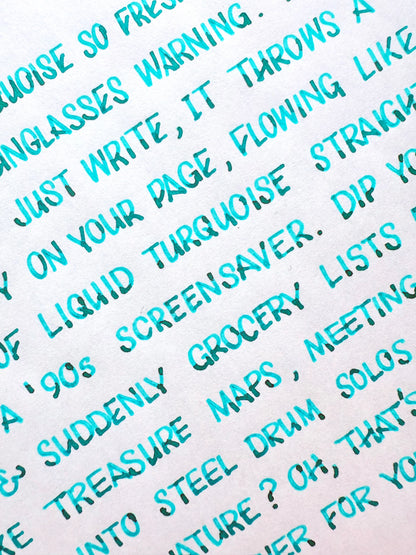 SO FRESH
WARNING.
JUST WRITE, IT THROWS A
ON YOUR PAGE, FLOWING LIKE
OF LIQUID TURQUOISE STRAIGHT
A '90s SCREENSAVER. DIP YO
& SUDDENLY GROCERY LISTS
TREASURE MAPS, MEETING
INTO STEEL DRUM SOLOS
? OH, THAT'S
FOR YO